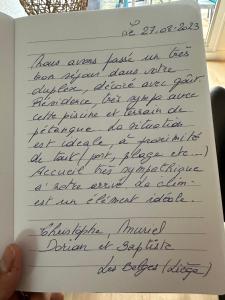 Le 27.08.2023
Nous avons passé un très
bon séjour dans votre
duplex, décoré avec goût.
Résidence, très sympa avec
cette piscine et terrain de
pétanque. La situation
est idéale, à proximité
de tout (port, plage etc...)
Accueil très sympathique
à notre arrivé. La clim
est un élément idéale.
Christophe, Muriel
Dorian et Baptiste
Les Belges (Liège)